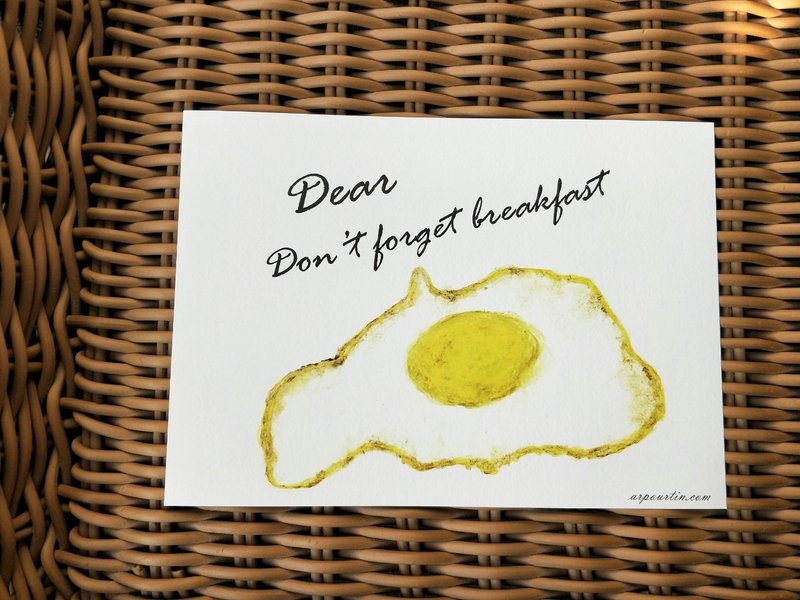 Dear
Don't forget breakfast
arpourtin.com